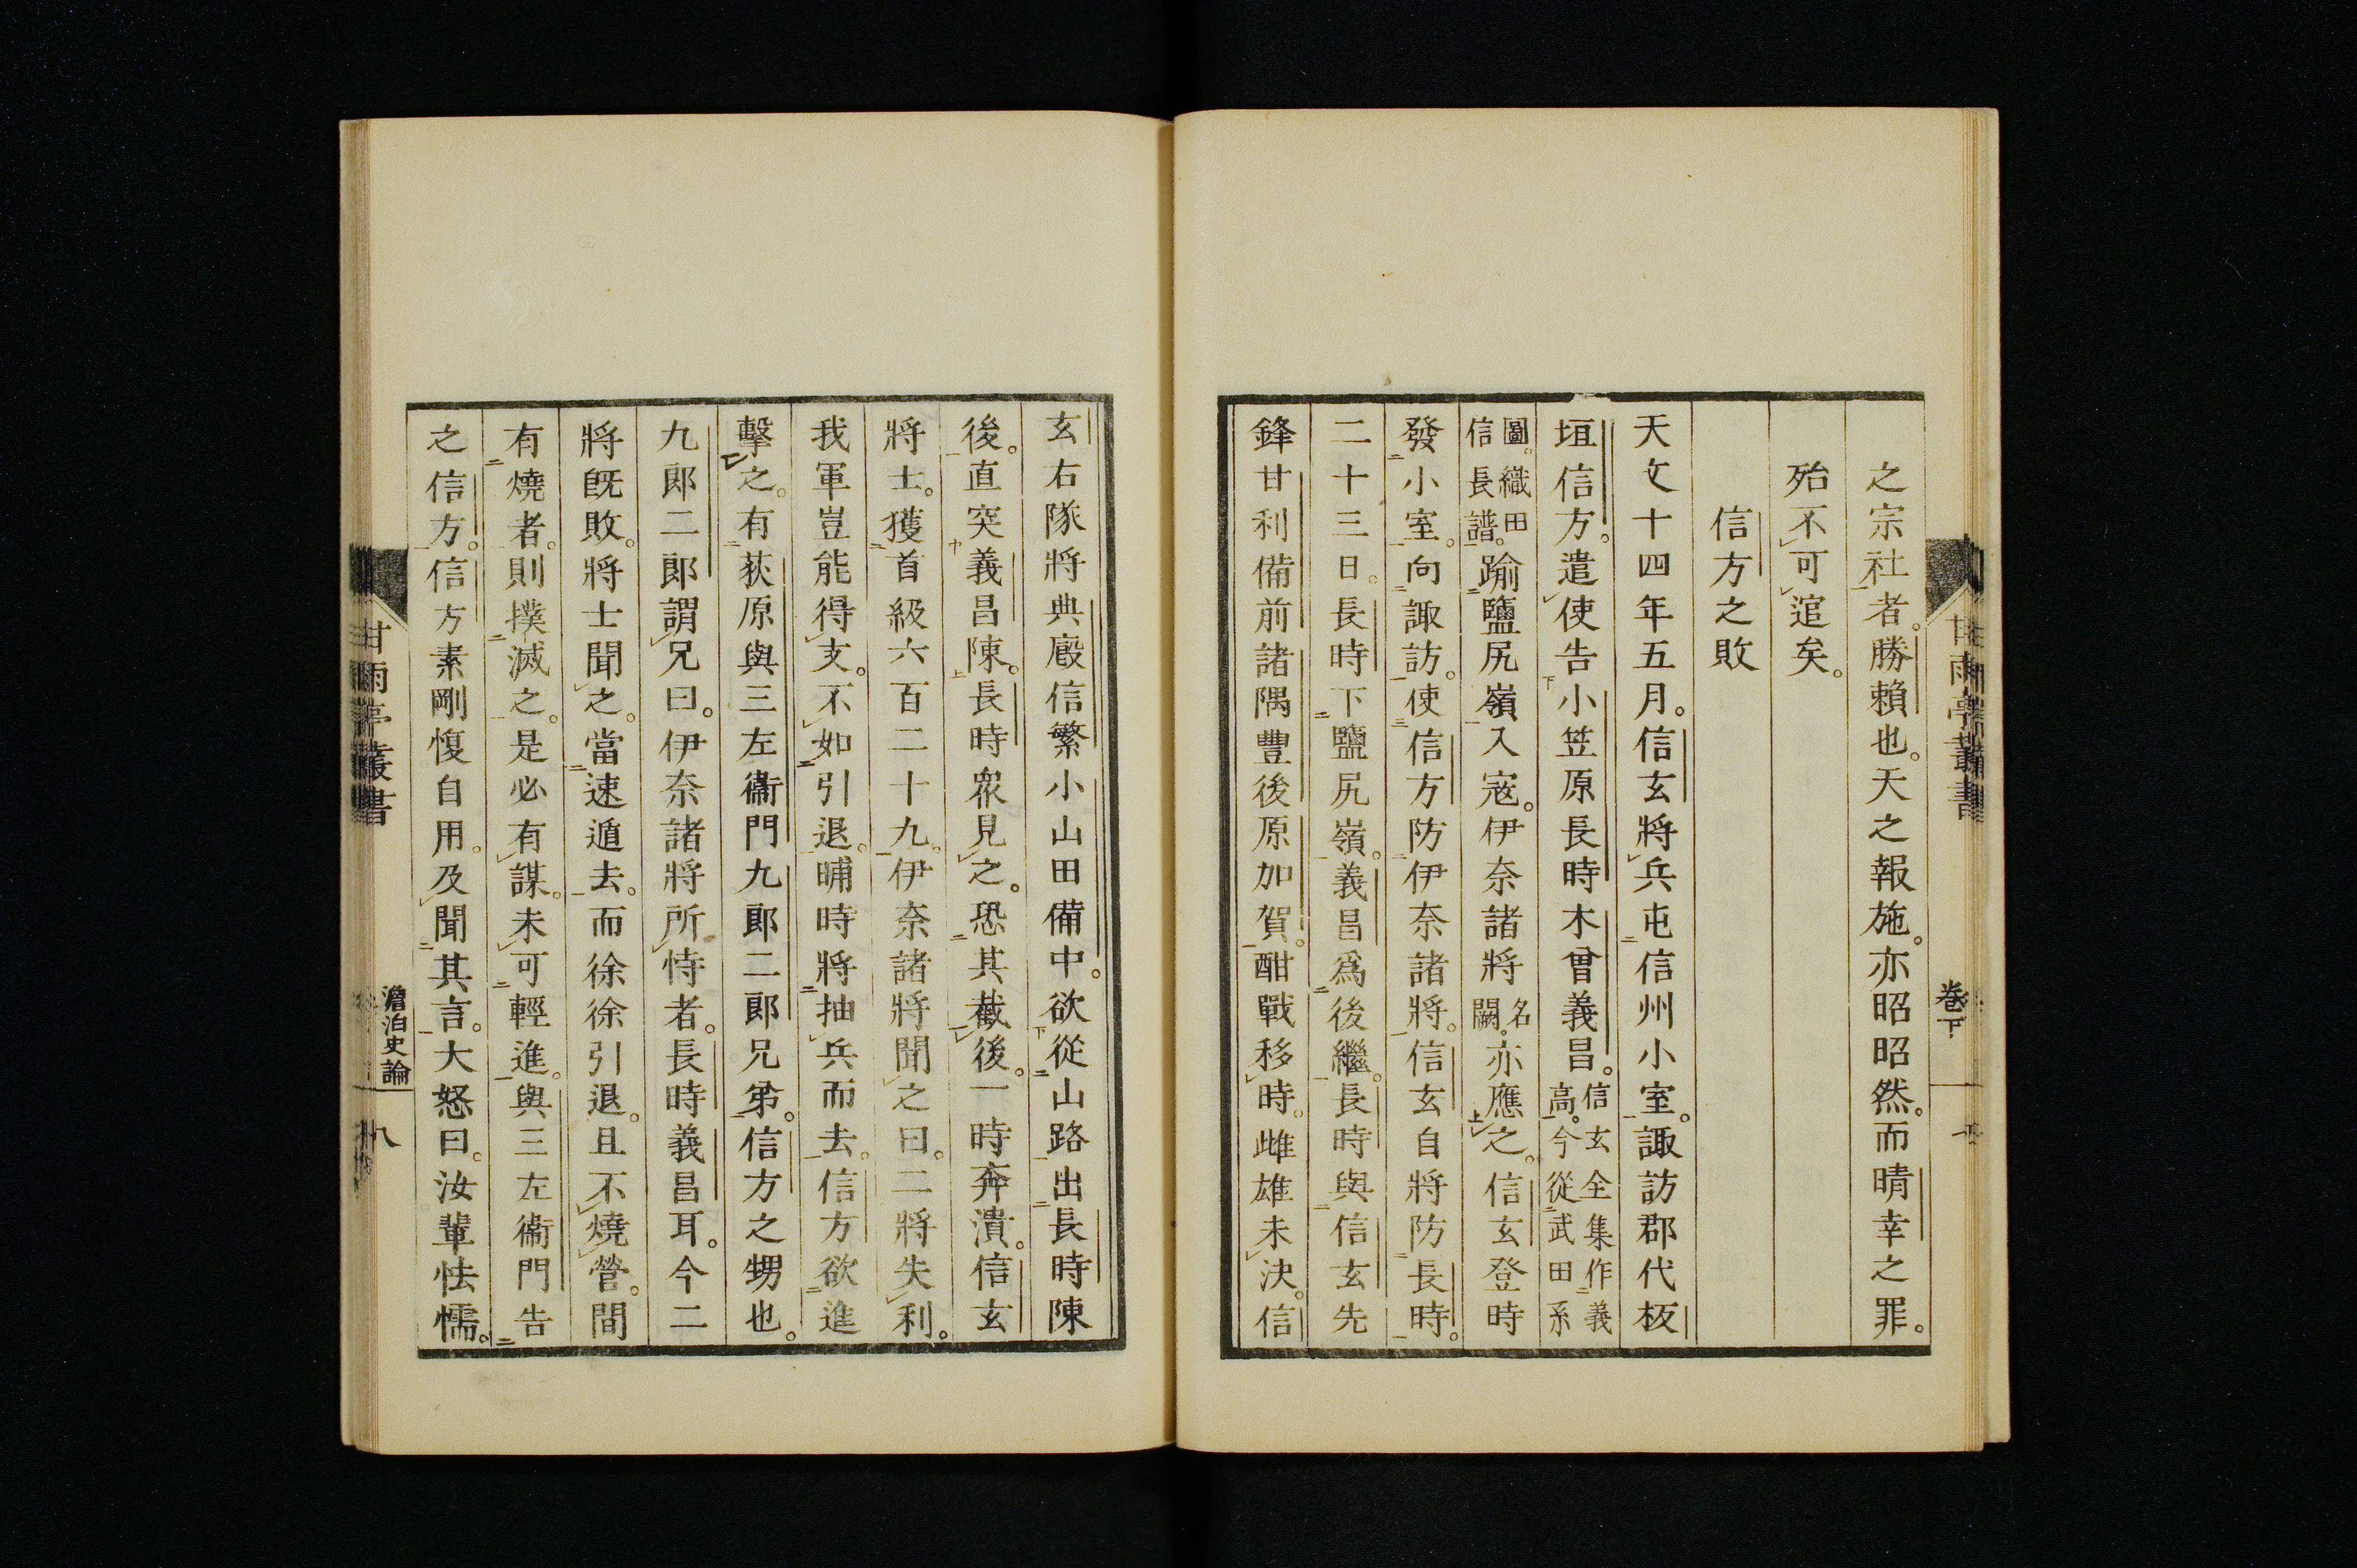 之宗社者。勝賴也。天之報施。亦昭昭然。而晴幸之罪。
殆不可逭矣。
信方之敗
天文十四年五月。信玄將兵屯信州小室。諏訪郡代板
垣信方。遣使告小笠原長時木曾義昌。信玄全集作義高。今從武田系
圖。織田信長譜。踰鹽尻嶺入寇。伊奈諸將名闕。亦應之。信玄登時
發小室。向諏訪。使信方防伊奈諸將。信玄自將防長時。
二十三日。長時下鹽尻嶺。義昌爲後繼。長時與信玄先
鋒甘利備前諸隅豐後原加賀。酣戰移時。雌雄未決。信
卷下
玄右隊將典廐信繁小山田備中。欲從山路出長時陳
後。直突義昌陳。長時衆見之。恐其截後。一時奔潰。信玄
將士。獲首級六百二十九。伊奈諸將聞之曰。二將失利。
我軍豈能得支。不如引退。晡時將抽兵而去。信方欲進
擊之。有荻原與三左衞門九郎二郎兄弟。信方之甥也。
九郎二郎謂兄曰。伊奈諸將所恃者。長時義昌耳。今二
將旣敗。將士聞之。當速遁去。而徐徐引退。且不燒營。間
有燒者。則撲滅之。是必有謀。未可輕進。與三左衞門告
之信方。信方素剛愎自用。及聞其言。大怒曰。汝輩怯懦。
甘雨亭叢書
澹泊史論
八